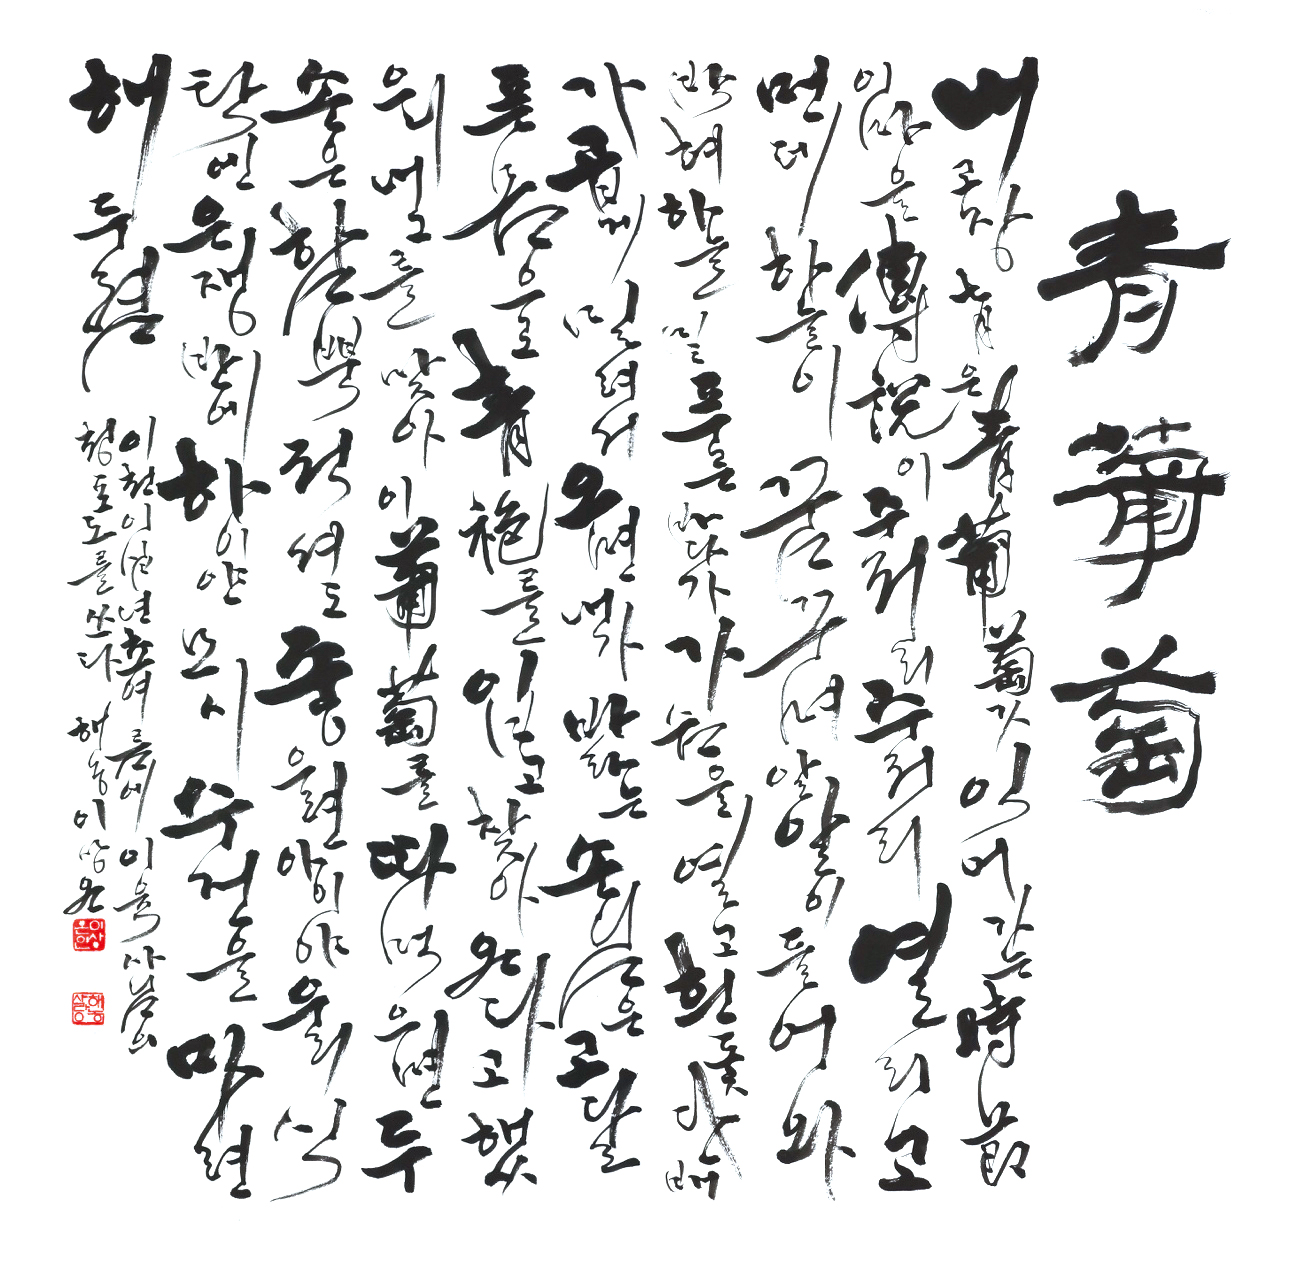 靑葡萄
내 고장 七月은 靑葡萄가 익어가는 時節
이 마을 傳說이 주저리 주저리 열리고
먼 데 하늘이 꿈꾸며 알알이 들어와
박혀 하늘 밑 푸른 바다가 가슴을 열고 흰 돛단배
가 곱게 밀려서 오면 내가 바라는 손님은 고달
픈 몸으로 靑袍를 입고 찾아온다고 했
으니 내 그를 맞아 이 葡萄를 따 먹으면 두
손은 함뿍 적셔도 좋으련 아이야 우리 식
탁엔 은쟁반에 하이얀 모시 수건을 마련
해 두렴
초여름에 이육사님의
청포도를 쓰다